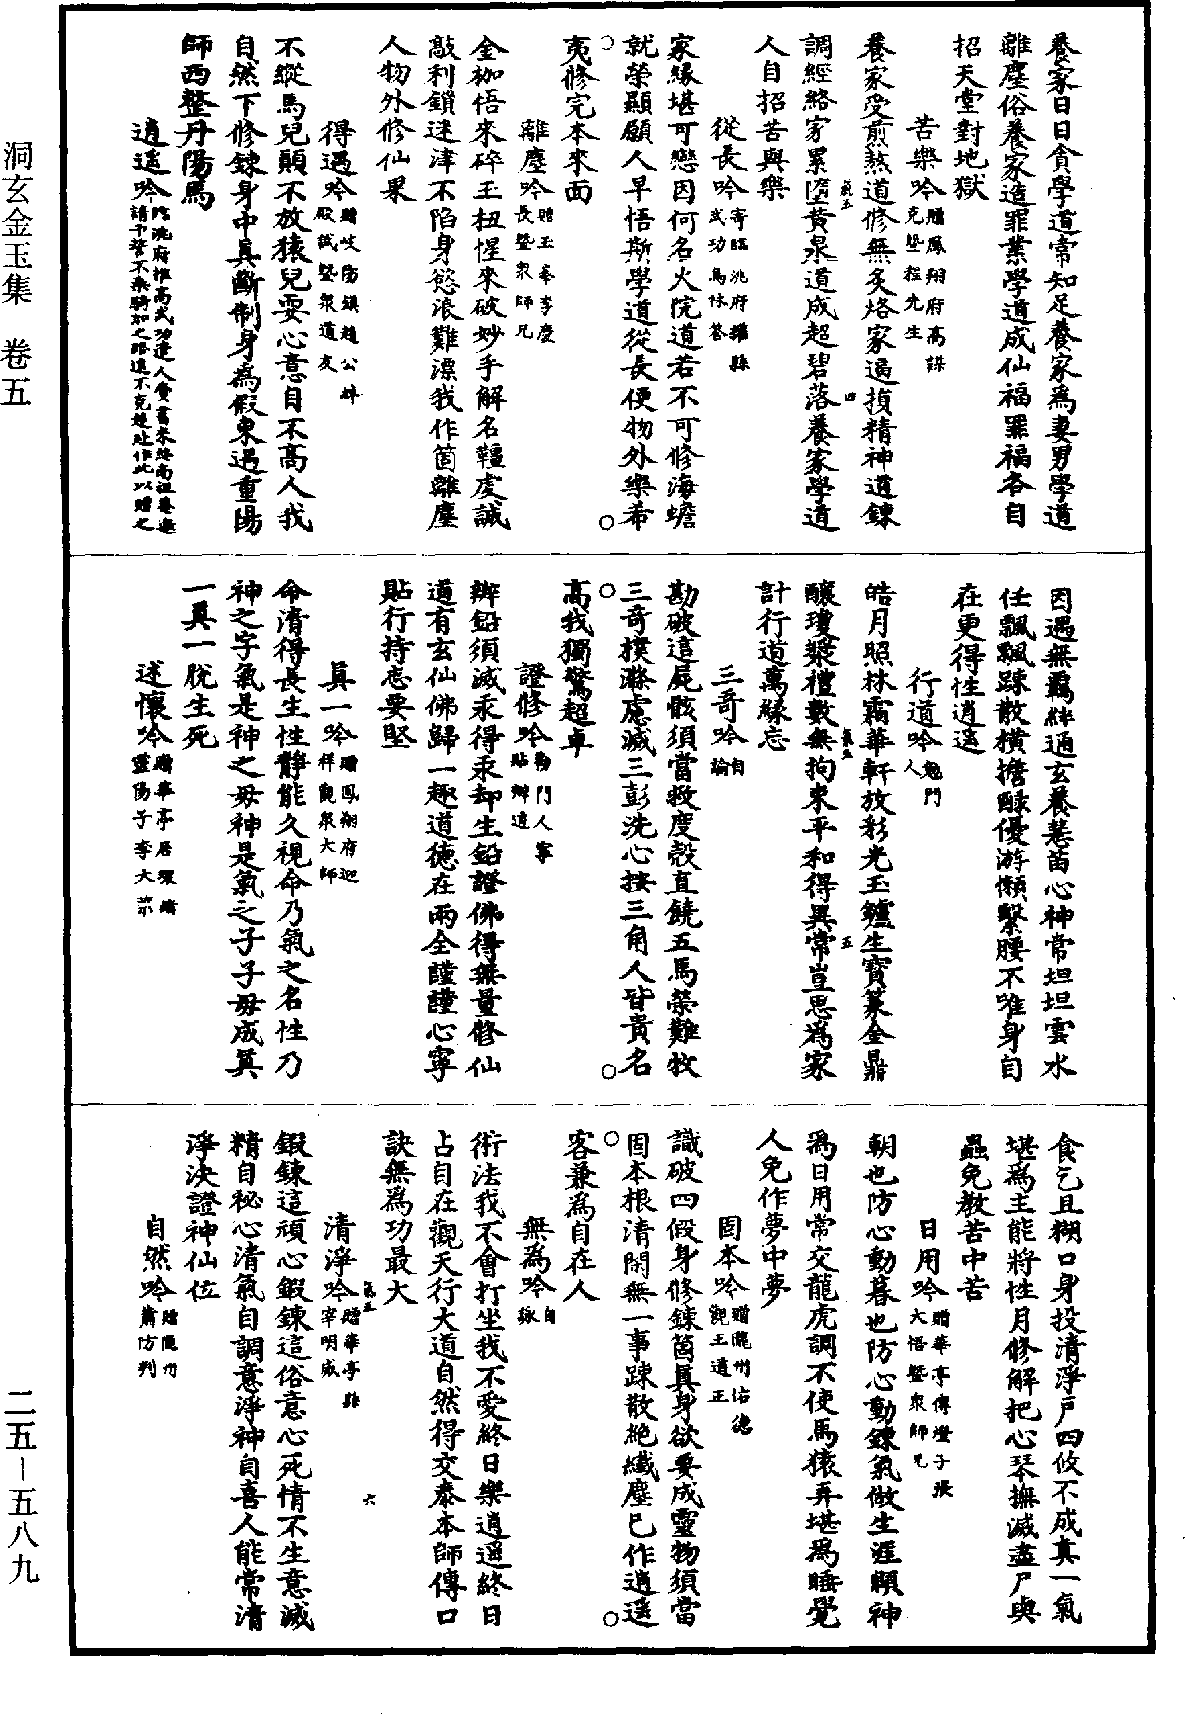 洞玄金玉集　卷五
養家日日貪學道常知足養家爲妻男學道
離塵俗養家造罪業學道成仙福罪福各自
招天堂對地獄
苦樂吟贈鳳翔府高
克暨程先生
養家受煎熬道修無炙烙家過損精神道鍊
調經絡家累墮黃泉道成超碧落養家學道
人自招苦與樂
從長吟寄臨洮府
武功馬
家緣堪可戀因何名火院道若不可修海蟾
就榮顯願人早悟斯學道從長便物外樂希
夷修完本來面
離塵吟贈玉峯李慶
長暨衆師兄
金枷悟來碎玉杻惺來破妙手解名韁虔誠
敲利鎖迷津不陷身慾浪難漂我作箇離塵
人物外修仙果
得遇吟贈岐陽鎮趙公
殿試暨衆道友
不縱馬兒顛不放猿兒耍心意自不高人我
自然下修鍊身中真斷制身爲假東遇重陽
師西整丹陽馬
逍遙吟
因遇無羈絆通玄養慧苗心神常坦坦雲水
任飄飄踈散橫擔酸優游懶繫腰不唯身自
在更得性逍遙
行道吟勉門
人
皓月照林霜華軒放彩光玉爐生寶篆金鼎
釀瓊漿禮數無拘束平和得異常豈思爲家
計行道萬緣忘
三奇吟自
諭
勘破這屍骸須當救度殼直饒五馬榮難牧
三奇撲滌慮滅三彭洗心按三角人皆貴名
高我獨驚超卓
證修吟勉門人寧
貼辦道
辨鉛須滅汞得汞却生鉛證佛得無量修仙
道有玄仙佛歸一趣道德在兩全謹謹心寧
貼行持志要堅
真一吟贈鳳翔府迎
祥觀衆大師
命清得長生性靜能久視命乃氣之名性乃
神之字氣是神之母神是氣之子子母成真
一真一脫生死
述懷吟贈華亭居環
靈陽子李大
食乞且糊口身投清淨戶四攸不成真一氣
堪爲主能將性月修解把心琴撫滅盡尸與
蟲免教苦中苦
日用吟贈華亭傳燈子張
大悟暨衆師兄
朝也防心動暮也防心動鍊氣做生涯顯神
爲日用常交龍虎調不使馬猿弄堪爲睡覺
人免作夢中夢
固本吟贈隴州佑德
觀王道正
識破四假身修鍊箇真身欲要成靈物須當
固本根清閑無一事踈散絶纖塵已作逍遥
客兼爲自在人
無爲吟自
詠
術法我不會打坐我不愛終日樂逍遥終日
占自在觀天行大道自然得交泰本師傳口
訣無爲功最大
清淨吟贈華亭縣
宰明威
鍜鍊這頑心鍜鍊這俗意心死情不生意滅
精自祕心清氣自調意淨神自喜人能常清
淨決證神仙位
自然吟贈隴州
蕭防判
二五－五八九